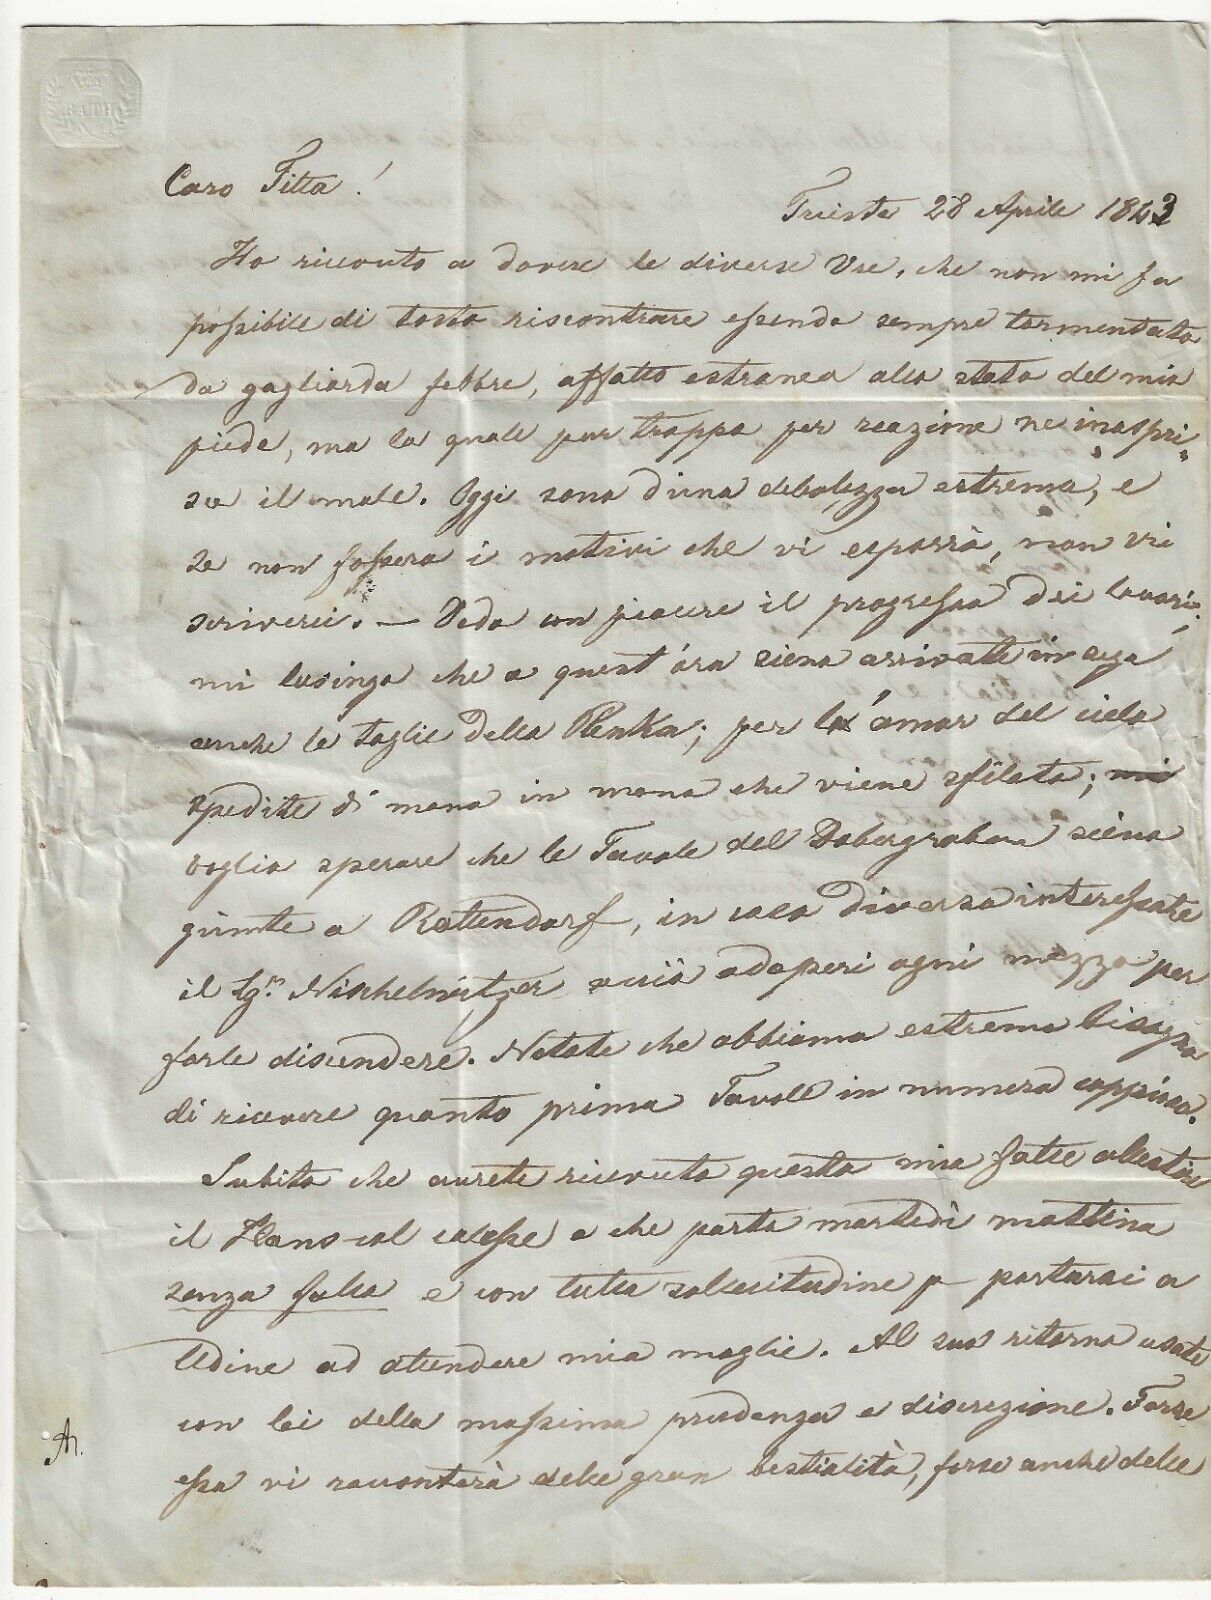 BATH
Caro Titta!
Trieste 28 Aprile 1843
Ho ricevuto a dovere le diverse Vre, che non mi fu
possibile di tosto riscontrare essendo sempre tormentato
da gagliarda febbre, affatto estranea allo stato del mio
piede, ma la quale pur troppo per reazione ne inaspri-
sce il male. Oggi sono d'una debolezza estrema, e
se non fossero i motivi che vi esporrò, non vi
scriverei. — Vedo con piacere il progresso dei lavori,
mi lusingo che a quest'ora sieno arrivate in sega
anche le taglie della Plenka; per l'amor del cielo
spedite di mano in mano che viene sfilata;
voglio sperare che le Tavole del Dobergraben sieno
giunte a Rattendorf, in caso diverso interessate
il Sgr. acciò adoperi ogni mezzo per
farle discendere. Notate che abbiamo estremo bisogno
di ricevere quanto prima Tavole in numero copioso.
Subito che avrete ricevuto questa mia fatte allestire
il Hans col calesse e che parta martedì mattina
senza fallo e con tutta sollecitudine p portarsi a
Udine ad attendere mia moglie. Al suo ritorno usate
con lei della massima prudenza e discrezione. Forse
essa vi racconterà delle gran bestialità, forse anche delle
A.